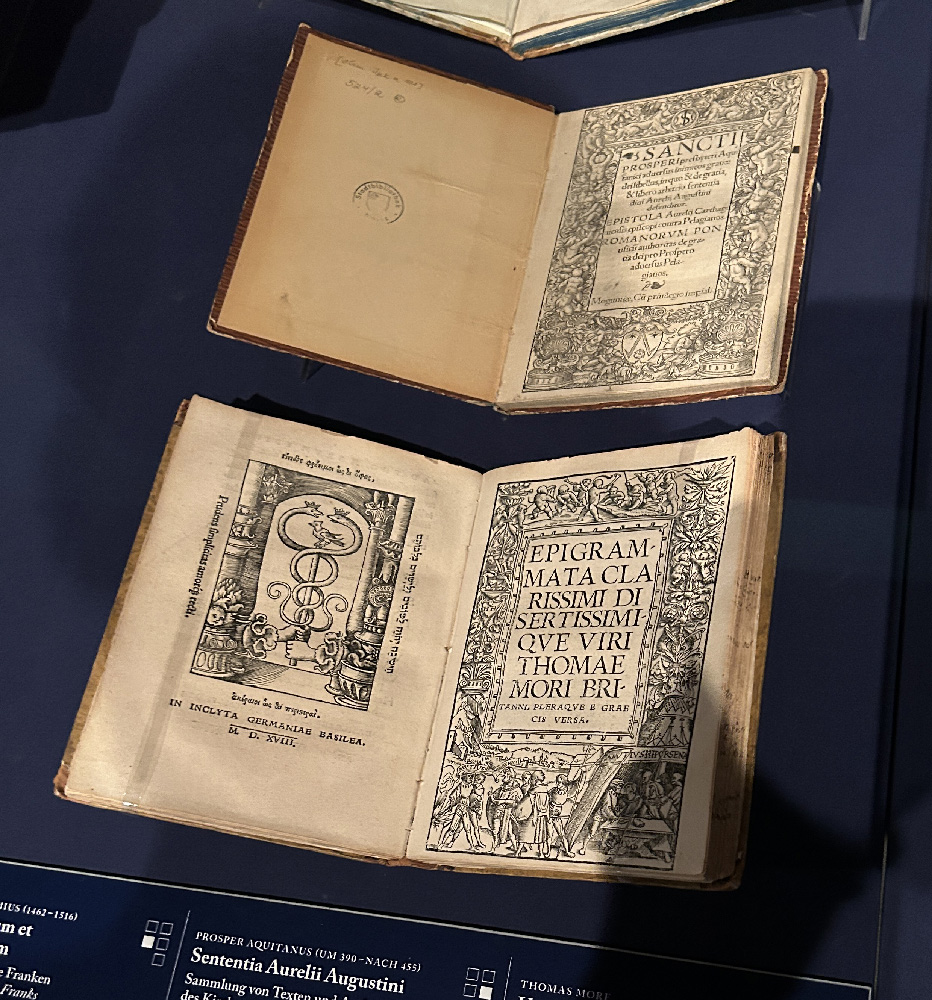 524/2
SANCTI
PROSPERI presbyteri Aqui
tanici adversus inimicos gratiæ
dei libellus, in quo & de gratia,
& libero arbitrio sententia
divi Aurelii Augustini
defenditur.
EPISTOLA Aurelii Carthag
nensis episcopi contra Pelagianos
ROMANORVM PON
tificū authoritas de gra-
tia dei pro Prospero
adversus Pela-
gianos.
Moguntiæ, Cū privilegio Impiali
Prudens simplicitas amorq́; recti.
IN INCLYTA GERMANIAE BASILEA.
M. D. XVIII.
EPIGRAM-
MATA CLA
RISSIMI DI
SERTISSIMI-
QVE VIRI
THOMAE
MORI BRI-
TANNI, PLERAQVE E GRAE
CIS VERSA.
HIUS (1462–1516)
um et
m
e Franken
Franks
PROSPER AQUITANUS (UM 390–NACH 455)
Sententia Aurelii Augustini
Sammlung von Texten und
des
THOMAS MOR